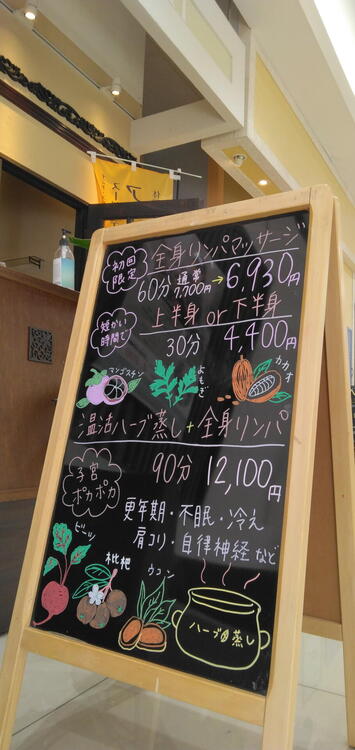 初回限定
全身リンパマッサージ
60分 通常7,700円→6,930円
短かい時間で
上半身 or 下半身
30分 4,400円
マンゴスチン
よもぎ
カカオ
温活ハーブ蒸し+全身リンパ
子宮ポカポカ
90分 12,100円
更年期・不眠・冷え
肩コリ・自律神経など
ビーツ
枇杷
ウコン
ハーブ蒸し